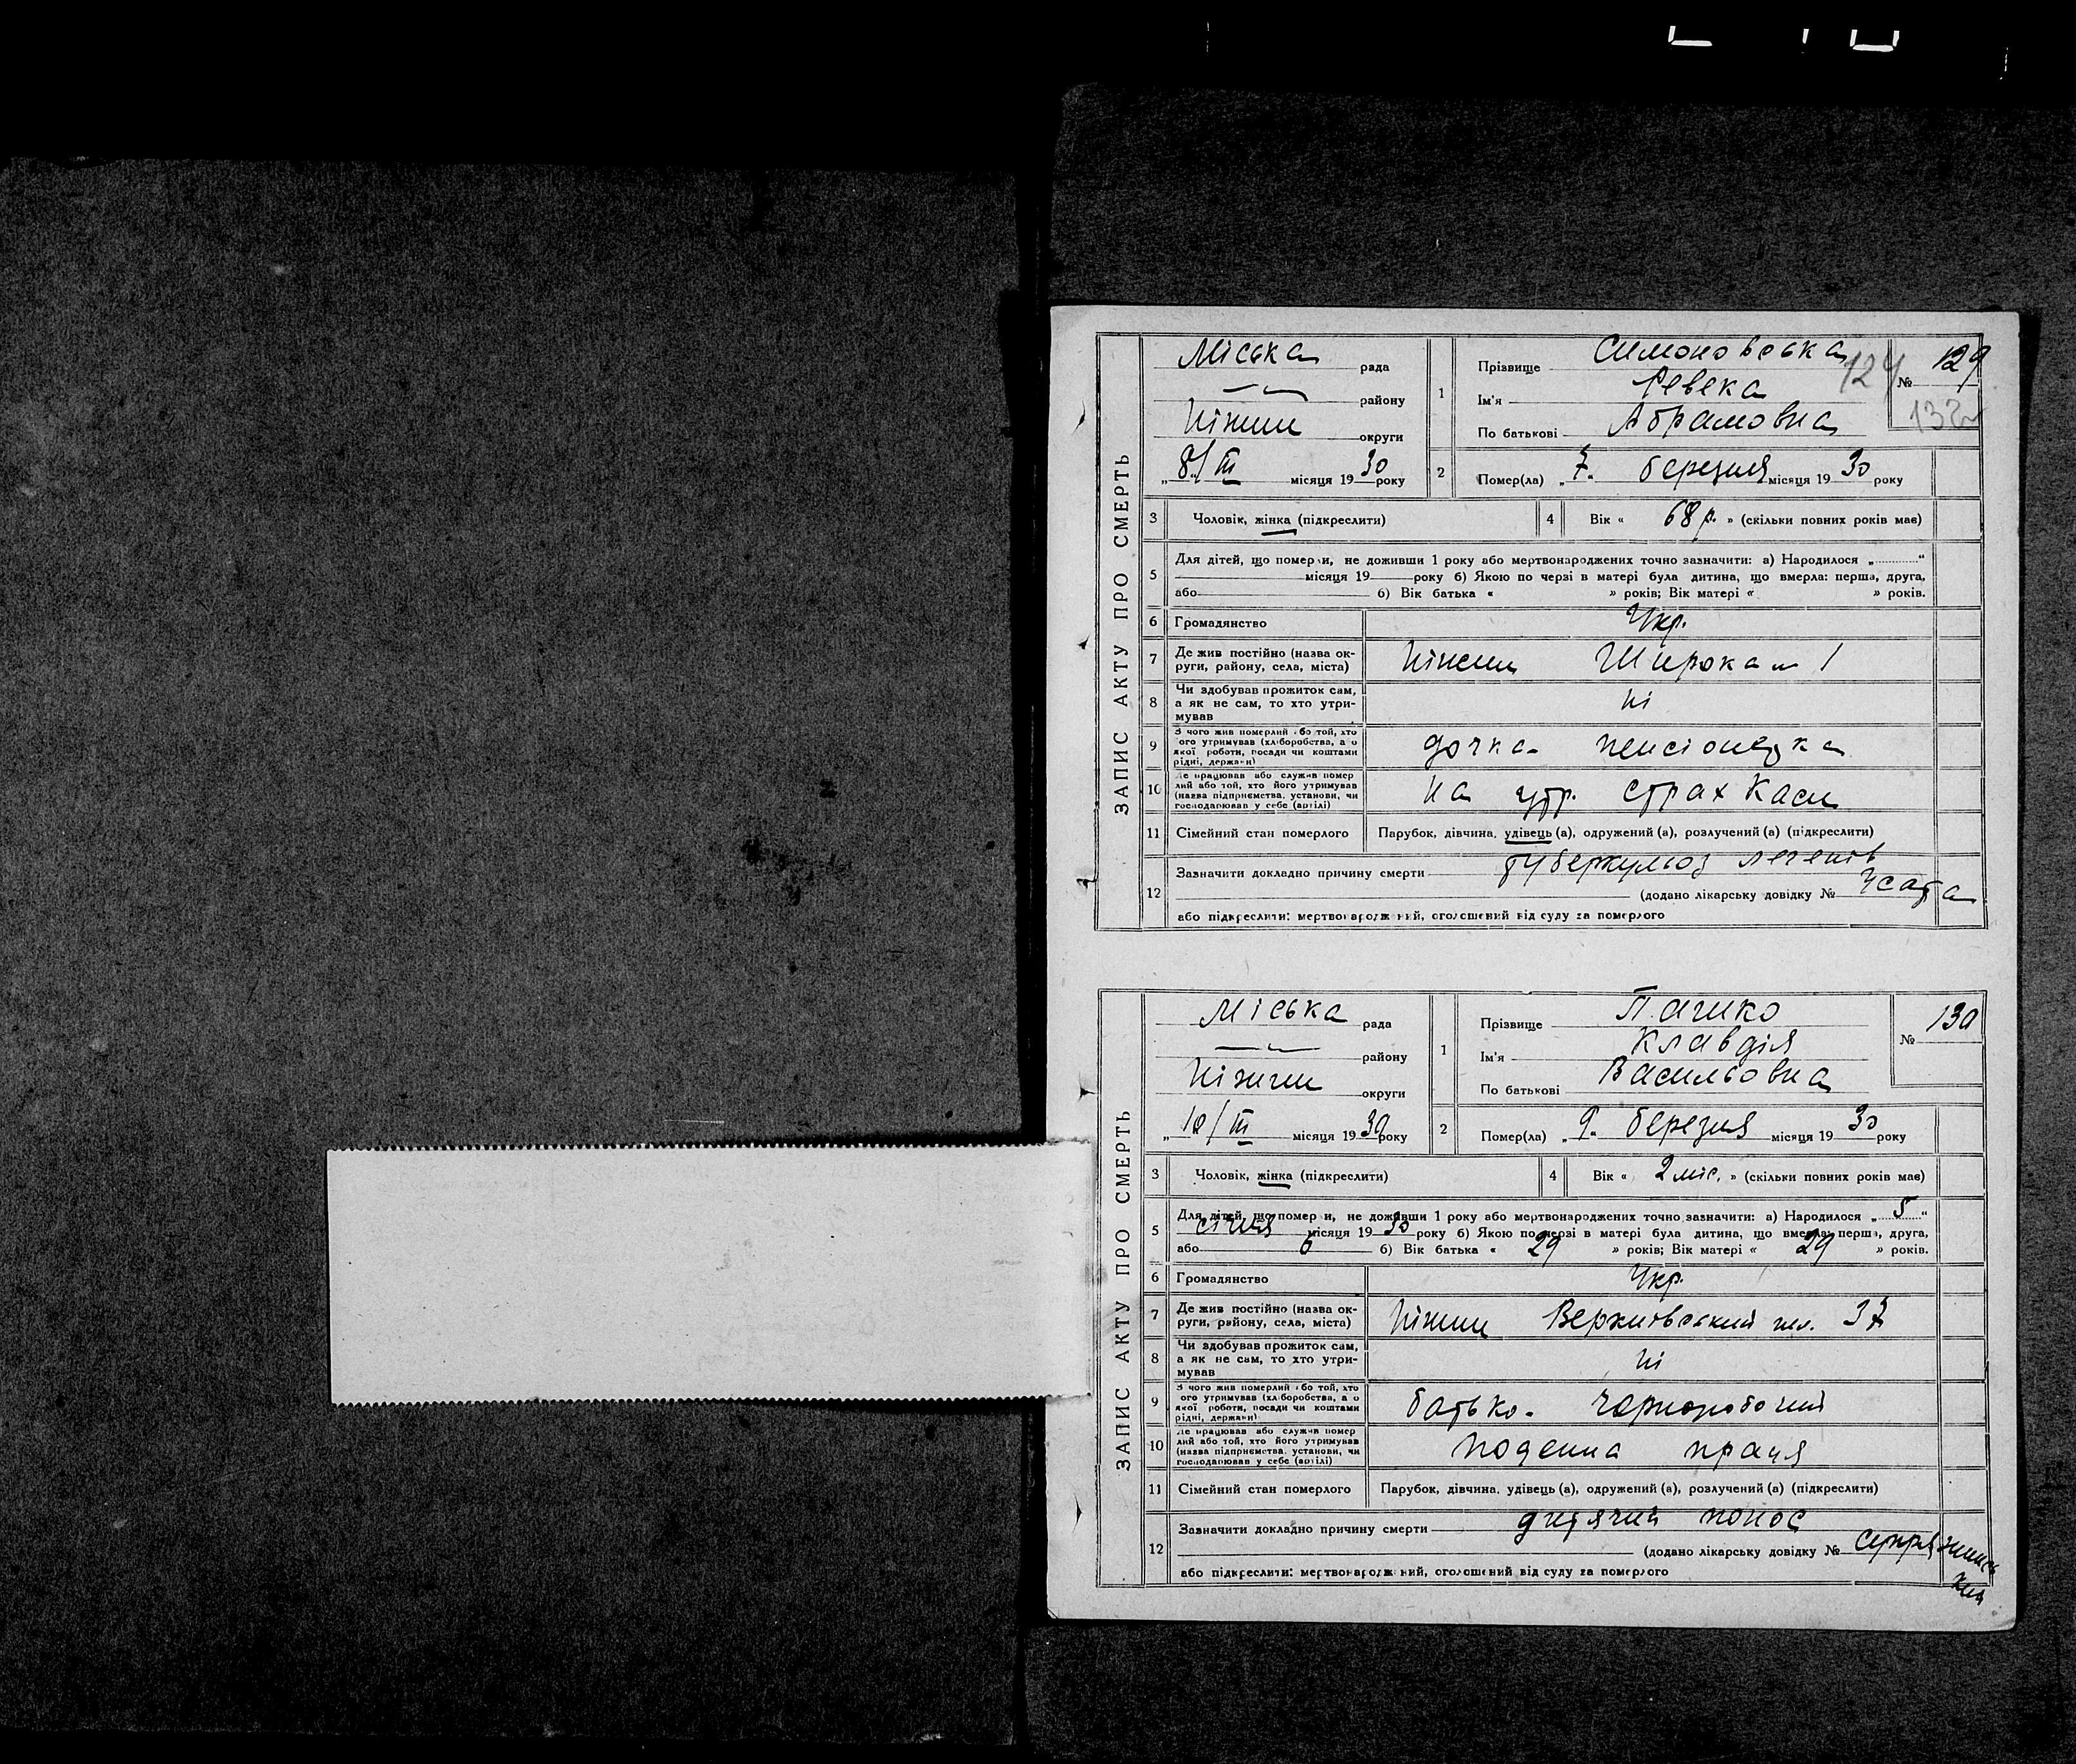 ЗАПИС АКТУ ПРО СМЕРТЬ
Міська рада
району
Ніжин округи
„8/III місяця 1930 року
1
Прізвище Симоновська
Ім'я Ревека
По батькові Абрамовна
№ 129
124
132
2 Помер(ла) „7. березня місяця 1930 року
3 Чоловік, жінка (підкреслити)
4 Вік « 68 р. » (скільки повних років має)
5 Для дітей, що померли, не доживши 1 року або мертвонароджених точно зазначити: а) Народилося „ “
місяця 19 року б) Якою по черзі в матері була дитина, що вмерла: перша, друга,
або б) Вік батька « » років; Вік матері « » років.
6 Громадянство Укр.
7 Де жив постійно (назва ок-
руги, району, села, міста) Ніжин Широка 1
8 Чи здобував прожиток сам,
а як не сам, то хто утри-
мував ні
9 З чого жив померлий або той, хто
його утримував (хліборобства, або
якої роботи, посади чи коштами
рідні, держави) дочка пенсіонерка
10 Де працював або служив помер
лий або той, хто його утримував
(назва підприємства, установи, чи
господарював у себе (артілі) на утр. страх каси
11 Сімейний стан померлого Парубок, дівчина, удівець (а), одружений (а), розлучений (а) (підкреслити)
12 Зазначити докладно причину смерти туберкульоз легенів
(додано лікарську довідку №
або підкреслити: мертвонароджений, оголошений від суду за померлого
ЗАПИС АКТУ ПРО СМЕРТЬ
Міська рада
району
Ніжин округи
„10/III місяця 1930 року
1
Прізвище Пашко
Ім'я Клавдія
По батькові Васильовна
№ 130
2 Помер(ла) „9. березня місяця 1930 року
3 Чоловік, жінка (підкреслити)
4 Вік « 2 міс. » (скільки повних років має)
5 Для дітей, що померли, не доживши 1 року або мертвонароджених точно зазначити: а) Народилося „5“
січня місяця 1930 року б) Якою по черзі в матері була дитина, що вмерла: перша, друга,
або 6 б) Вік батька « 29 » років; Вік матері « 29 » років.
6 Громадянство Укр.
7 Де жив постійно (назва ок-
руги, району, села, міста) Ніжин 37
8 Чи здобував прожиток сам,
а як не сам, то хто утри-
мував ні
9 З чого жив померлий або той, хто
його утримував (хліборобства, або
якої роботи, посади чи коштами
рідні, держави) батько. чорноробочий
10 Де працював або служив помер
лий або той, хто його утримував
(назва підприємства, установи, чи
господарював у себе (артілі) поденна праця
11 Сімейний стан померлого Парубок, дівчина, удівець (а), одружений (а), розлучений (а) (підкреслити)
12 Зазначити докладно причину смерти дитячий понос
(додано лікарську довідку №
або підкреслити: мертвонароджений, оголошений від суду за померлого